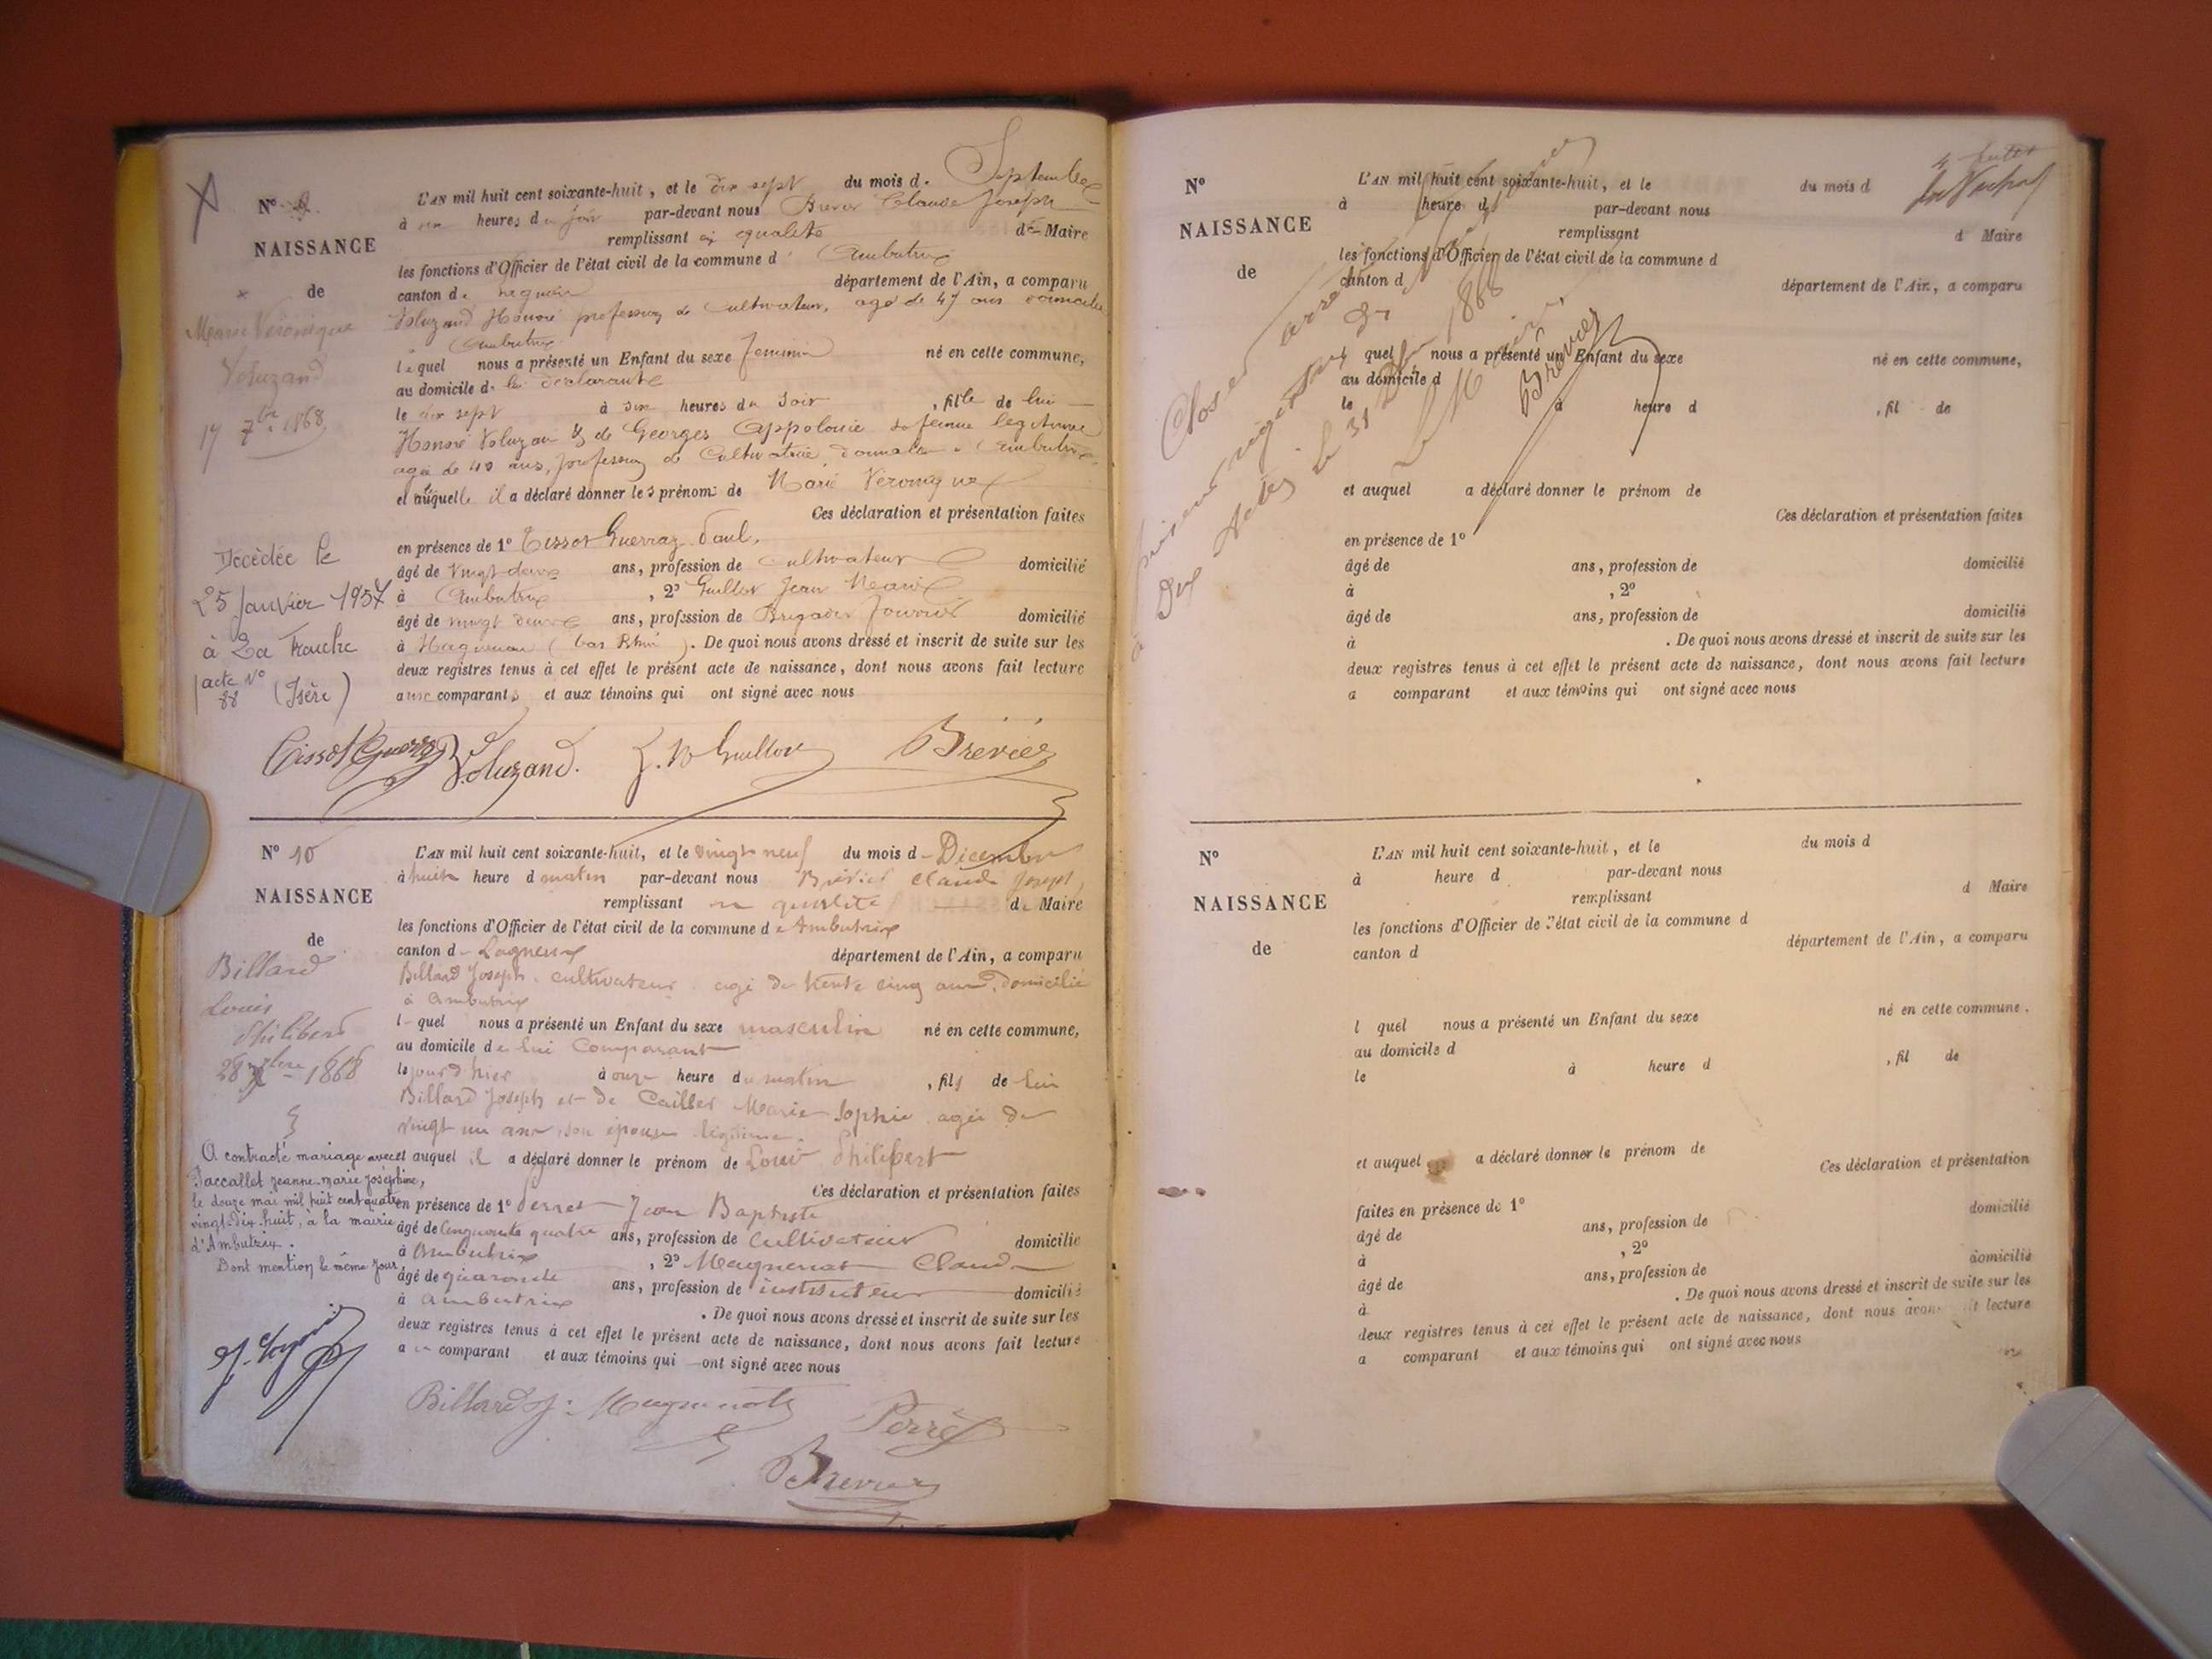 N° 9.
NAISSANCE
de
Marie Véronique
Voluzand
17 7bre 1868
Décédée le
25 Janvier 1957
à La Tronche
acte N°
88 (Isère)
L'AN mil huit cent soixante-huit, et le dix sept du mois d. Septembre
à six heures du soir par-devant nous Brevier Claude Joseph
remplissant en qualité de Maire
les fonctions d'Officier de l'état civil de la commune d' Ambutrix
canton de Lagnieu département de l'Ain, a comparu
Voluzand Honoré profession de cultivateur, agé de 47 ans domicilié
Ambutrix
lequel nous a présenté un Enfant du sexe feminin né en cette commune,
au domicile de la declarante
le dix sept à six heures du Soir, fille de lui
Honoré Voluzan & de Georges Appolonie sa femme légitime
agée de 40 ans, profession de Cultivatrice, domiciliée à Ambutrix
et auquelle il a déclaré donner les prénoms de Marie Veronique
Ces déclaration et présentation faites
en présence de 1° Tissot Guerraz Paul,
âgé de vingt deux ans, profession de Cultivateur domicilié
à Ambutrix, 2° Guillot Jean Marie
âgé de vingt deux ans, profession de Brigadier fourrier domicilié
à Haguenau (bas Rhin). De quoi nous avons dressé et inscrit de suite sur les
deux registres tenus à cet effet le présent acte de naissance, dont nous avons fait lecture
aux comparants et aux témoins qui ont signé avec nous
Tissot Guerraz Voluzand. J. M Guillot Brévier
N° 10
NAISSANCE
de
Billard
Louis
Philibert
28 Xbre 1868
A contracté mariage avec
Jaccallet Jeanne-Marie Joséphine,
le douze mai mil huit cent quatre
vingt-dix-huit, à la mairie
d'Ambutrix.
Dont mention le même jour
L'AN mil huit cent soixante-huit, et le vingt neuf du mois d - Décembre
à huit heure d matin par-devant nous Brévier Claude Joseph,
remplissant en qualité de Maire
les fonctions d'Officier de l'état civil de la commune d'Ambutrix
canton d - Lagnieux département de l'Ain, a comparu
Billard Joseph. cultivateur. agé de trente cinq ans. domicilié
à Ambutrix
l - quel nous a présenté un Enfant du sexe masculin né en cette commune,
au domicile de lui Comparant
le jour d'hier à onze heure du matin, fils de lui
Billard Joseph et de Cailler Marie Sophie agée de
vingt un ans, son épouse légitime.
et auquel il a déclaré donner le prénom de Louis Philibert
Ces déclaration et présentation faites
en présence de 1° Perret Jean Baptiste
âgé de cinquante quatre ans, profession de Cultivateur domicilié
à Ambutrix, 2° Magnenat Claude
âgé de quarante ans, profession de instituteur domicilié
à Ambutrix. De quoi nous avons dressé et inscrit de suite sur les
deux registres tenus à cet effet le présent acte de naissance, dont nous avons fait lecture
au comparant et aux témoins qui ont signé avec nous
Billard J: Magnenat Perret
Brevier
N°
NAISSANCE
de
L'AN mil huit cent soixante-huit, et le du mois d
à heure d par-devant nous
remplissant d Maire
les fonctions d'Officier de l'état civil de la commune d
canton d département de l'Ain, a comparu
l quel nous a présenté un Enfant du sexe né en cette commune,
au domicile d
le à heure d, fil de
et auquel a déclaré donner le prénom de
Ces déclaration et présentation faites
en présence de 1°
âgé de ans, profession de domicilié
à, 2°
âgé de ans, profession de domicilié
à. De quoi nous avons dressé et inscrit de suite sur les
deux registres tenus à cet effet le présent acte de naissance, dont nous avons fait lecture
a comparant et aux témoins qui ont signé avec nous
Clos et arrêté
31 Xbre 1868
Le Maire
Brevier
N°
NAISSANCE
de
L'AN mil huit cent soixante-huit, et le du mois d
à heure d par-devant nous
remplissant d Maire
les fonctions d'Officier de l'état civil de la commune d
canton d département de l'Ain, a comparu
l quel nous a présenté un Enfant du sexe né en cette commune.
au domicile d
le à heure d, fil de
et auquel a déclaré donner le prénom de
Ces déclaration et présentation
faites en présence de 1° domicilié
âgé de ans, profession de
à, 2° domicilié
âgé de ans, profession de
à. De quoi nous avons dressé et inscrit de suite sur les
deux registres tenus à cet effet le présent acte de naissance, dont nous avons fait lecture
a comparant et aux témoins qui ont signé avec nous